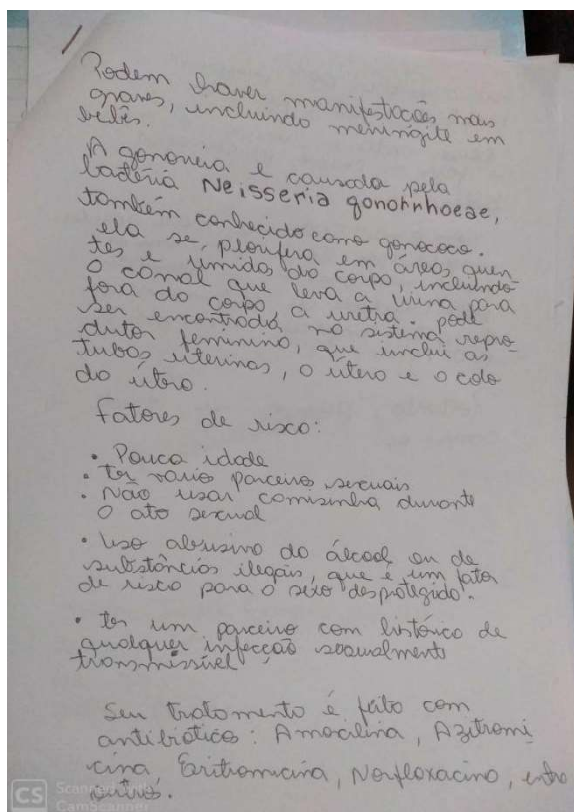 Podem haver manifestações mais
graves, incluindo meningite em
bebês.
A gonorreia e causada pela
bactéria Neisseria gonorrhoeae,
também conhecido como gonococo.
ela se, prolifera em áreas quen-
tes e umidas do corpo, incluindo
o canal que leva a urina para
fora do corpo, a uretra. pode
ser encontrada no sistema repro-
dutor feminino, que inclui as
tubas uterinas, o útero e o colo
do útero.
Fatores de risco:
• Pouca idade
• ter vario parceiros sexuais
• Não usar camisinha durante
o ato sexual
• Uso abusivo do álcool ou de
substâncias ilegais, que e um fator
de risco para o sexo desprotegido.
• ter um parceiro com histórico de
qualquer infecção sexualmente
transmissível
Seu tratamento é feito com
antibiótico: Amocilina, Azitromi
cina, Eritromicina, Norfloxacino, entre
outros.
CS Scanned with
CamScanner